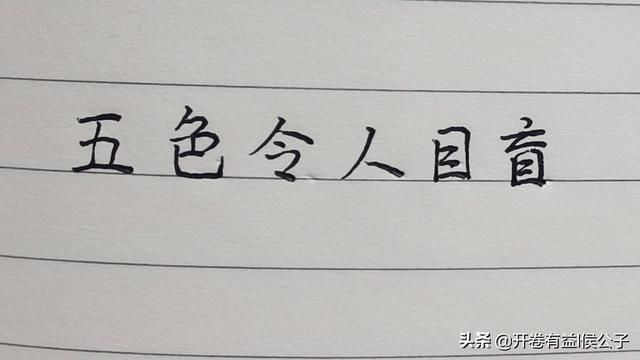 五色令人目盲
头条 @开卷有益l侯公子